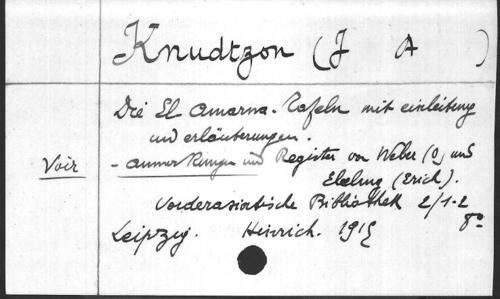 Knudtzon (J A )
Die El Amarna-Tafeln mit einleitung
und erläuterungen.
Voir - anmerkungen und Register von Weber (O) und
Ebeling (Erich).
Vorderasiatische Bibliothek 2/1-2
Leipzig. Hinrich. 1915 8º